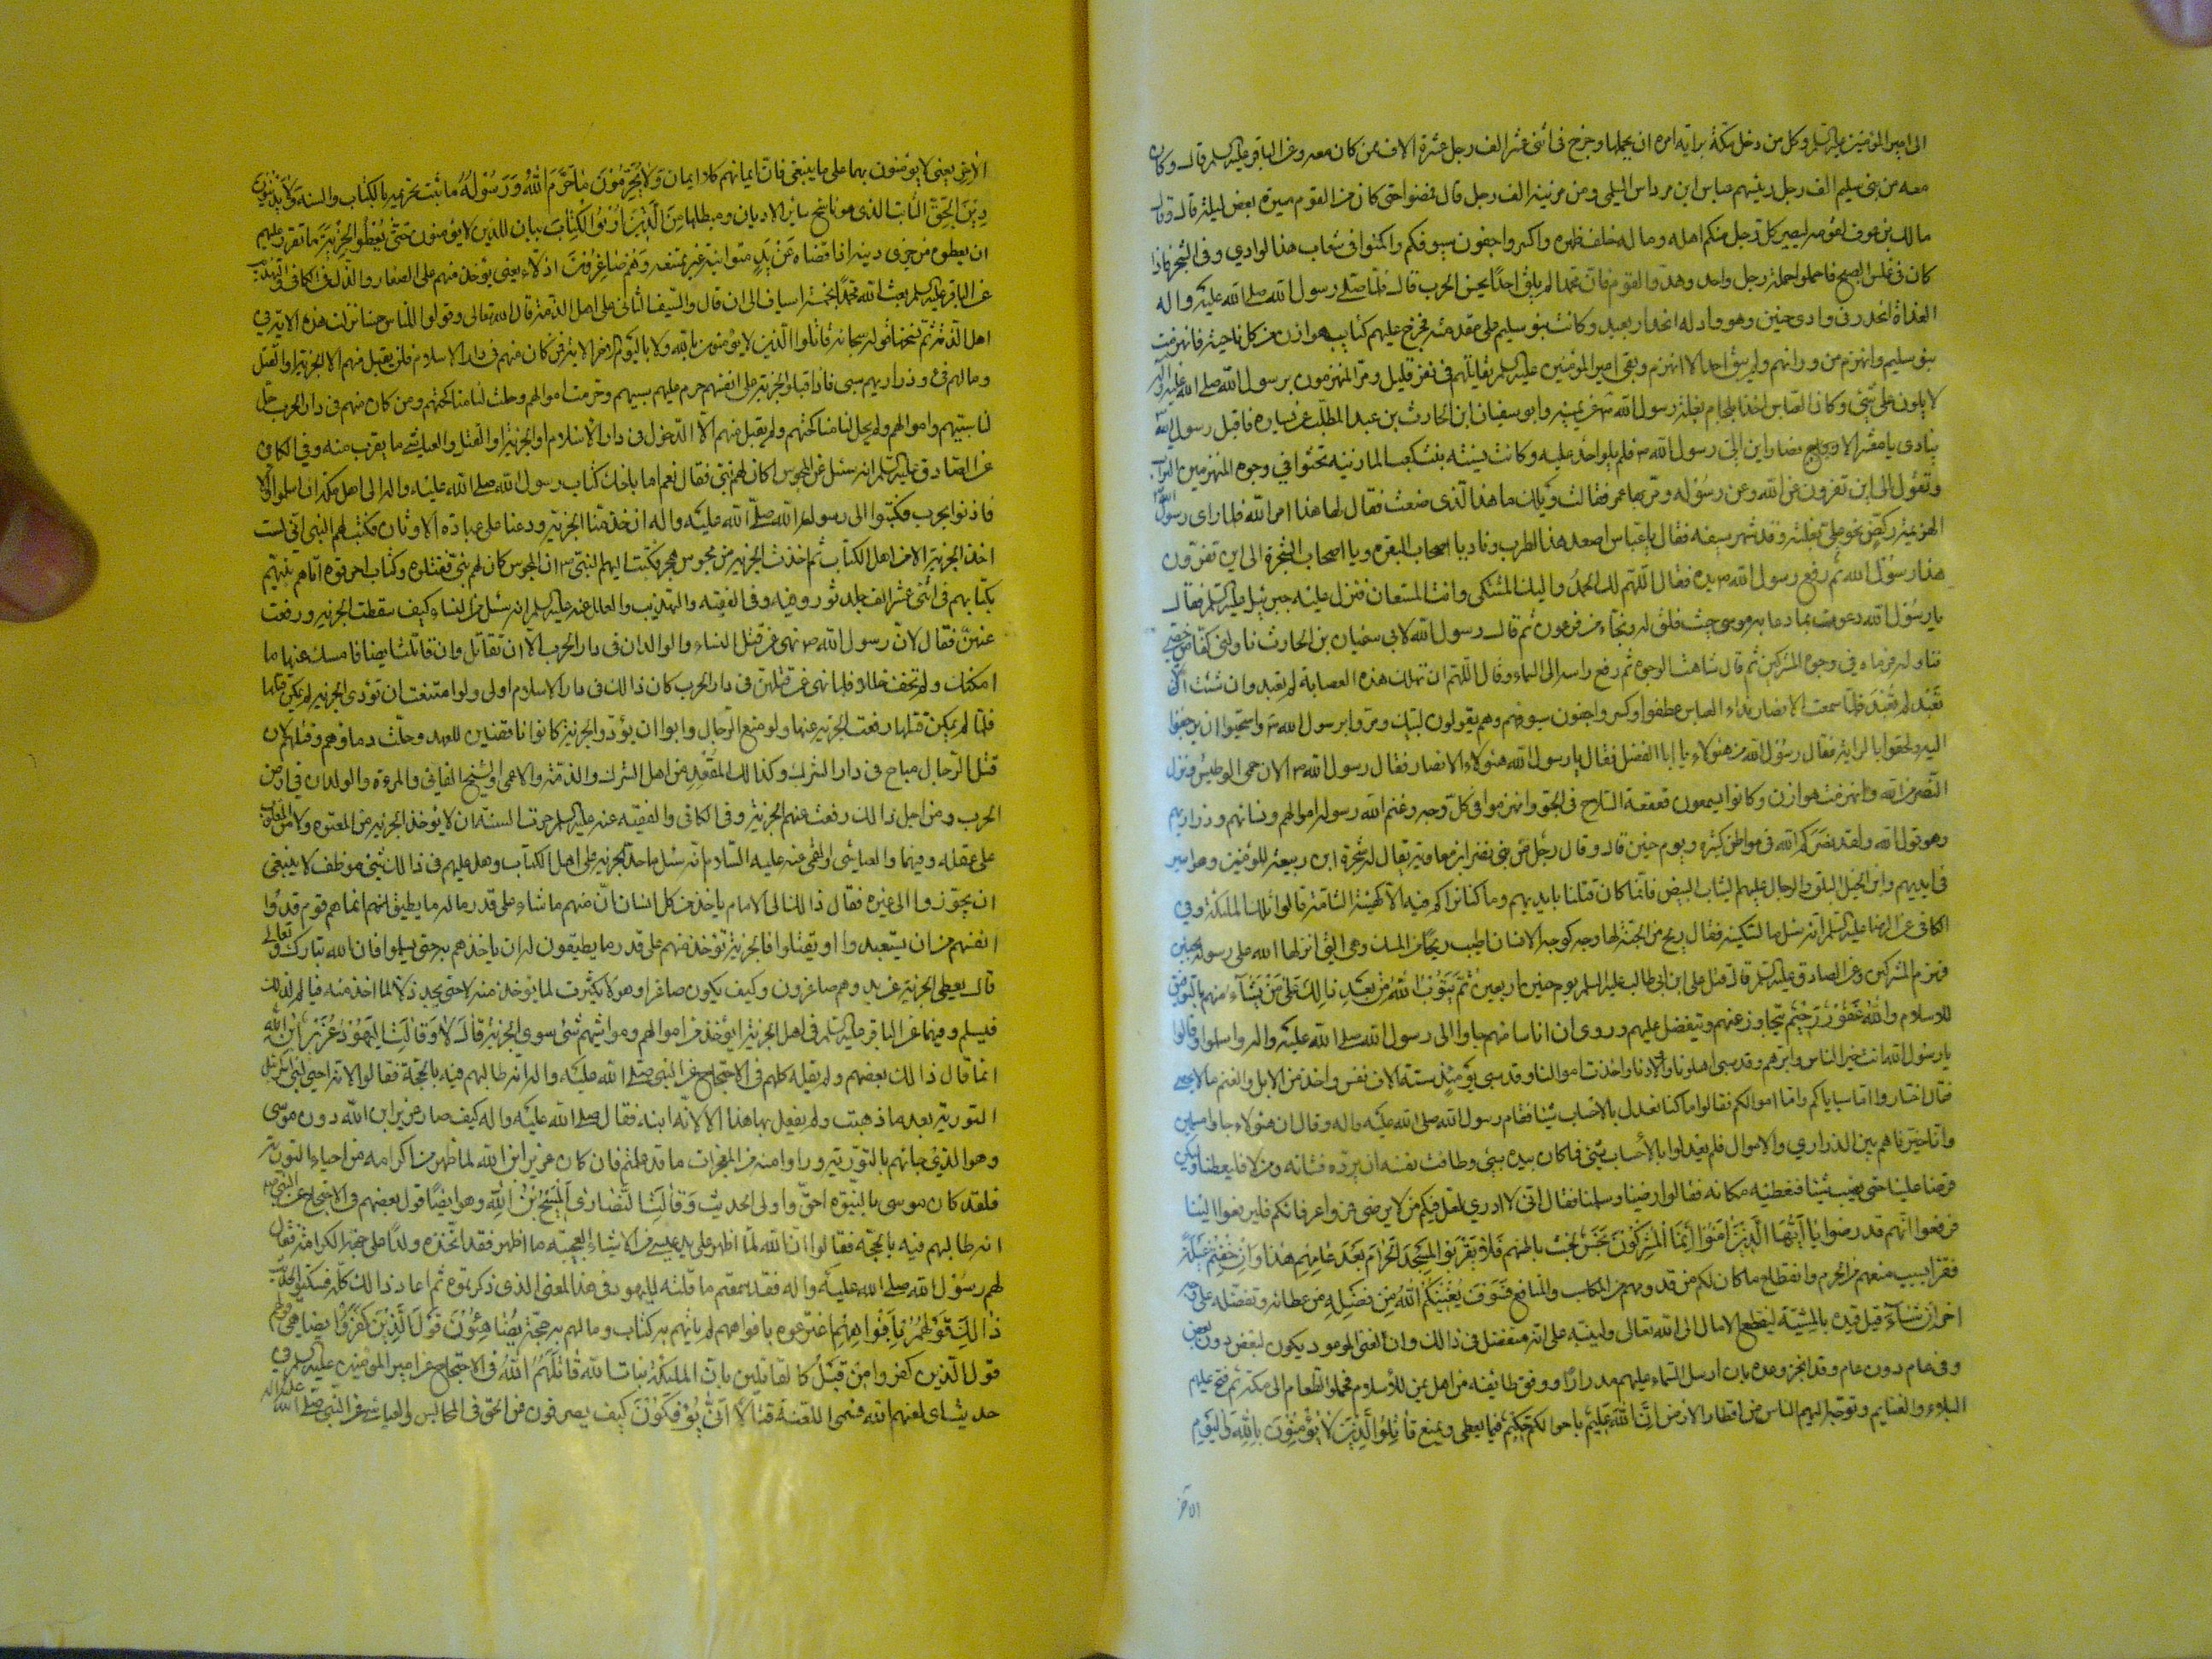 الى امير المؤمنين عليه السلم وكل من دخل مكة براية امره ان يحملها وخرج فى اثنى عشر الف رجل عشرة الاف ممن كان معه وعن الباقر عليه السلم قال وكان
معه من بنى سليم الف رجل رئيسهم عباس ابن مرداس السلمى ومن مزينة الف رجل قال فمضوا حتى كان من القوم مسيرة بعض ليلة قال وقال
مالك بن عوف لقومه ليصير كل رجل منكم اهله وماله خلف ظهره واكسروا جفون سيوفكم واكمنوا فى شعاب هذا الوادي وفى الشجر فاذا
كان فى غلس الصبح فاحملوا حملة رجل واحد وهدوا القوم فان محمدا لم يلق احدا يحسن الحرب قال فلما صلى رسول الله صلى الله عليه واله
الغداة انحدر فى وادى حنين وهو واد له انحدار بعيد وكانت بنو سليم على مقدمته فخرج عليهم كتايب هوازن من كل ناحية فانهزمت
بنو سليم وانهزم من ورائهم ولم يبق احد الا انهزم وبقى امير المؤمنين عليه السلم يقاتلهم فى نفر قليل ومر المنهزمون برسول الله صلى الله عليه واله
لا يلون على شئ وكان العباس اخذا بلجام بغلة رسول الله ص عن يمينه وابو سفيان ابن الحارث بن عبد المطلب عن يساره فاقبل رسول الله
ينادى يا معشر الانصار اين الى رسول الله ص فلم يلو احد عليه وكانت نسيبة بنت كعب المازنية تحثوا في وجوه المنهزمين التراب
وتقول الى اين تفرون عن الله وعن رسوله ومر بها عمر فقالت ويلك ما هذا الذى صنعت فقال لها هذا امر الله فلما راى رسول الله
الهزيمة ركض نحو على بغلته وقد شهر سيفه فقال يا عباس اصعد هذا الظرب وناد يا اصحاب البقره ويا اصحاب الشجرة الى اين تفرون
هذا رسول الله ثم رفع رسول الله ص يده فقال اللهم لك الحمد واليك المشتكى وانت المستعان فنزل عليه جبرئيل عليه السلم فقال
يا رسول الله دعوت بما دعا به موسى حيث فلق له البحر ونجاه من فرعون ثم قال رسول الله لابى سفيان بن الحارث ناولنى كفا من حصى
فناوله فرماه فى وجوه المشركين ثم قال شاهت الوجوه ثم رفع راسه الى السماء وقال اللهم ان تهلك هذه العصابة لم تعبد وان شئت ان لا
تعبد لم تعبد فلما سمعت الانصار نداء العباس عطفوا وكسروا جفون سيوفهم وهم يقولون لبيك ومروا برسول الله ص واستحيوا ان يرجعوا
اليه ولحقوا بالراية فقال رسول الله من هؤلاء يا ابا الفضل فقال يا رسول الله هؤلاء الانصار فقال رسول الله ص الان حمى الوطيس ونزل
النصر من الله وانهزمت هوازن وكانوا يسمعون قعقعة السلاح فى الجو وانهزموا فى كل وجه وغنم الله رسوله اموالهم ونسائهم وذراريهم
وهو قول الله ولقد نصركم الله فى مواطن كثيرة ويوم حنين قال وقال رجل من بنى نضر ابن معاوية يقال له شجرة ابن ربيعة للمؤمنين وهو اسير
فى ايديهم واين الخيل البلق والرجال عليهم الثياب البيض فانما كان قتلنا بايديهم وما كنا نراكم فيه الا كهيئة الشامة قالوا تلك الملئكة وفى
الكافى عن الرضا عليه السلم انه سئل ما السكينه فقال ريح من الجنة لها وجه كوجه الانسان اطيب ريحا من المسك وهى التى انزلها الله على رسوله بحنين
فهزم المشركين وعن الصادق عليه السلم قال قتل على ابن ابى طالب عليه السلم يوم حنين اربعين ثم يتوب الله من بعد ذالك على من يشاء منهم بالتوفيق
للاسلام والله غفور رحيم يتجاوز عنهم ويتفضل عليهم وروى ان اناسا منهم جاوا الى رسول الله صلى الله عليه واله واسلموا وقالوا
يا رسول الله انت خير الناس وابرهم وقد سبى اهلونا واولادنا واخذت اموالنا وقد سبى يومئذ ستة الاف نفس واخذ من الابل والغنم ما لا يحصى
فقال اختاروا اما سباياكم واما اموالكم فقالوا ما كنا نعدل بالاحساب شيئا فقام رسول الله صلى الله عليه واله وقال ان هؤلاء جاوا مسلمين
وانا خيرناهم بين الذرارى والاموال فلم يعدلوا بالاحساب شيئا فمن كان بيده سبى وطابت نفسه ان يرده فشانه ومن لا فليعطنا وليكن
قرضا علينا حتى نصيب شيئا فنعطيه مكانه فقالوا رضينا وسلمنا فقال انى لا ادرى لعل فيكم من لا يرضى فمروا عرفائكم فليرفعوا الينا
فرفعوا انهم قد رضوا يا ايها الذين امنوا انما المشركون نجس لخبث باطنهم فلا يقربوا المسجد الحرام بعد عامهم هذا وان خفتم عيلة
فقرا بسبب منعهم من الحرم وانقطاع ما كان لكم من قدومهم من المكاسب والمنافع فسوف يغنيكم الله من فضله من عطائه وتفضله على وجه
اخر ان شاء قيل قيده بالمشية لينقطع الامال الى الله تعالى ولينبه على انه متفضل فى ذالك وان الغنى الموعود يكون لبعض دون بعض
وفى عام دون عام وقد انجز وعده بان ارسل السماء عليهم مدرارا ووفق طائفة من اهل يمن للاسلام فحملوا الطعام الى مكة ثم فتح عليهم
البلاد والغنايم وتوجه اليهم الناس من اقطار الارض ان الله عليم باحوالكم حكيم فيما يعطى ويمنع قاتلوا الذين لا يؤمنون بالله واليوم
الاخر
الاخر يعنى لا يؤمنون بهما على ما ينبغى فان ايمانهم كلا ايمان ولا يحرمون ما حرم الله ورسوله ما ثبت تحريمه بالكتاب والسنة ولا يدينون
دين الحق الثابت الذى هو ناسخ سائر الاديان ومبطلها من الذين اوتوا الكتاب بيان للذين لا يؤمنون حتى يعطوا الجزية ما تقرر عليهم
ان يعطوه من جزى دينه اذا قضاه عن يد مؤاتية غير ممتنعة وهم صاغرون اذلاء يعنى يؤخذ منهم على الصغار والذل فى الكافى والتهذيب
عن الباقر عليه السلم بعث الله محمدا بخمسة اسياف الى ان قال والسيف الثانى على اهل الذمة قال الله تعالى وقولوا للناس حسنا نزلت هذه الاية فى
اهل الذمة ثم نسخها قوله سبحانه قاتلوا الذين لا يؤمنون بالله ولا باليوم الاخر الاية فمن كان منهم فى دار الاسلام فلن يقبل منهم الا الجزية او القتل
ومالهم فئ وذراريهم سبى فاذا قبلوا الجزية على انفسهم حرم عليهم سبيهم وحرمت اموالهم وحلت لنا مناكحتهم ومن كان منهم فى دار الحرب حل
لنا سبيهم واموالهم ولم يحل لنا مناكحتهم ولم يقبل منهم الا الدخول فى دار الاسلام او الجزية او القتل والعياشى ما يقرب منه وفى الكافى
عن الصادق عليه السلم انه سئل عن المجوس اكان لهم نبى فقال نعم اما بلغك كتاب رسول الله صلى الله عليه واله الى اهل مكة ان اسلموا والا
فاذنوا بحرب فكتبوا الى رسول الله صلى الله عليه واله ان خذ منا الجزية ودعنا على عبادة الاوثان فكتب لهم النبى انى لست
اخذ الجزية الا من اهل الكتاب ثم اخذت الجزية من مجوس هجر فكتب اليهم النبى ص ان المجوس كان لهم نبى فقتلوه وكتاب احرقوه اتاهم نبيهم
بكتابهم فى اثنى عشر الف جلد ثور وفيه وفى الفقيه والتهذيب والعلل عنه عليه السلم انه سئل عن النساء كيف سقطت الجزية ورفعت
عنهن فقال لان رسول الله ص نهى عن قتل النساء والوالدان فى دار الحرب الا ان تقاتل وان قاتلت ايضا فامسك عنها ما
امكنك ولم تخف خللا فلما نهى عن قتلهن فى دار الحرب كان ذالك فى دار الاسلام اولى ولو امتنعت ان تؤدى الجزية لم يمكن قتلها
فلما لم يمكن قتلها رفعت الجزية عنها ولو منع الرجال وابوا ان يؤدوا الجزية كانوا ناقضين للعهد وحلت دماؤهم وقتلهم لان
قتل الرجال مباح فى دار الشرك وكذالك المقعد من اهل الشرك والذمة والاعمى والشيخ الفانى والمرءة والولدان فى ارض
الحرب ومن اجل ذالك رفعت عنهم الجزية وفى الكافى والفقيه عنه عليه السلم جرت السنة ان لا يؤخذ الجزية من المعتوه ولا من المغلوب
على عقله وفيهما والعياشى والقمى عنه عليه السلام انه سئل ما حد الجزية على اهل الكتاب وهل عليهم فى ذالك شئ موظف لا ينبغى
ان يجوزوا الى غيره فقال ذالك الى الامام ياخذ من كل انسان منهم ما شاء على قدر ماله ما يطيق انهم انما هم قوم فدوا
انفسهم من ان يستعبدوا او يقتلوا فالجزية تؤخذ منهم على قدر ما يطيقون له ان ياخذهم به حتى يسلموا فان الله تبارك وتعالى
قال يعطى الجزية عن يد وهم صاغرون وكيف يكون صاغرا وهو لا يكترث لما يؤخذ منه لا حتى يجد ذلا لما اخذ منه فيالم لذالك
فيسلم وفيهما عن الباقر عليه السلم فى اهل الجزية ايؤخذ من اموالهم ومواشيهم شئ سوى الجزية قال لا وقالت اليهود عزير ابن الله
انما قال ذالك بعضهم ولم يقله كلهم فى الاحتجاج عن النبى صلى الله عليه واله انه طالبهم فيه بالحجة فقالوا لانه احيى لبنى اسرائيل
التورية بعد ما ذهبت ولم يفعل بها هذا الا لانه ابنه فقال صلى الله عليه واله كيف صار عزير ابن الله دون موسى
وهو الذى جائهم بالتورية وراوا منه من المعجزات ما قد علمتم فان كان عزير ابن الله لما ظهر من اكرامه من احياء التورية
فلقد كان موسى بالبنوة احق واولى الحديث وقالت النصارى المسيح بن الله وهو ايضا قول بعضهم فى الاحتجاج عن النبى ص
انه طالبهم فيه بالحجة فقالوا ان الله لما اظهر على يد عيسى من الاشياء العجيبة ما اظهر فقد اتخذه ولدا على جهة الكرامة فقال
لهم رسول الله صلى الله عليه واله فقد سمعتم ما قلته لليهود فى هذا المعنى الذى ذكرتموه ثم اعاد ذالك كله فسكتوا الحديث
ذالك قولهم بافواههم اخترعوه بافواههم لم ياتهم به كتاب وما لهم به حجة يضاهئون قول الذين كفروا يضاهى قولهم
قول الذين كفروا من قبل كالقائلين بان الملئكة بنات الله قاتلهم الله فى الاحتجاج عن امير المؤمنين عليه السلم فى
حديث اى لعنهم الله فسمى اللعنة قتالا انى يؤفكون كيف يصرفون عن الحق فى المجالس والعياشى عن النبى صلى الله عليه واله